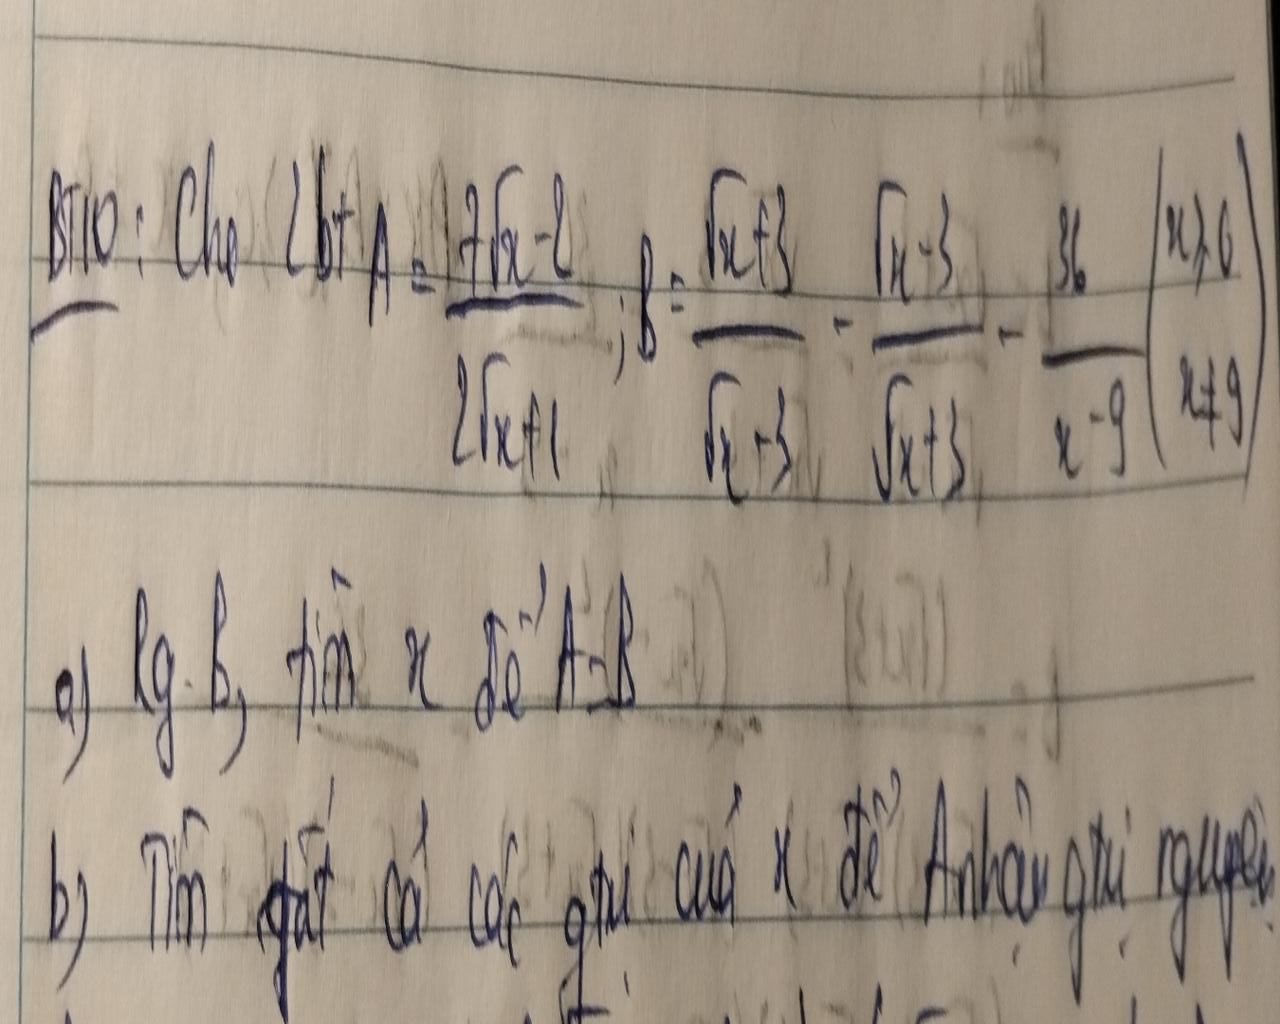 BT10: Cho 2 bt A = (7√x - 2)/(2√x + 1) ; B = (√x + 3)/(√x - 3) - (√x - 3)/(√x + 3) - 36/(x - 9) (x ≥ 0 x ≠ 9)
a) Rg B, tìm x để A = B
b) Tìm tất cả các gtrị của x để A nhận gtrị nguyên